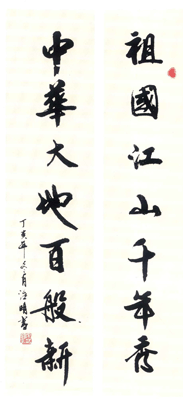 祖國江山千年秀
中華大地百般新
丁亥年冬月汪明書